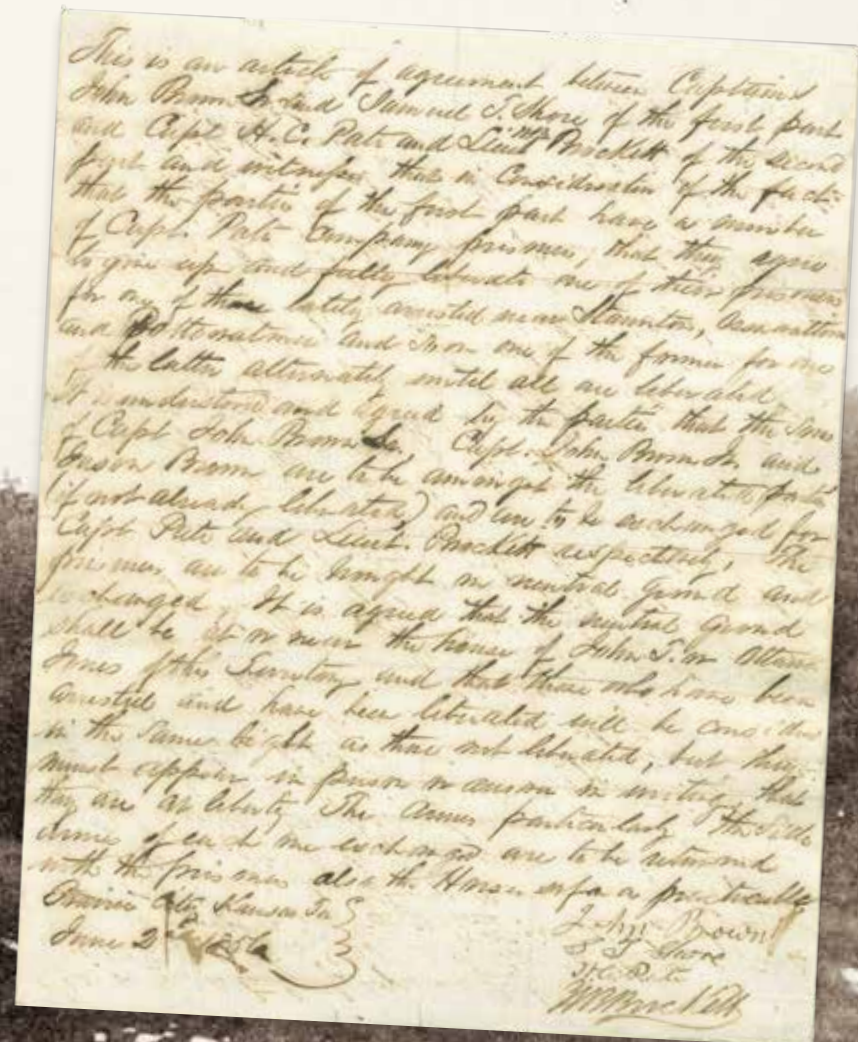 This is an article of agreement between Captains
John Brown Sr. and Samuel T. Shore of the first part
and Capt. H. C. Pate and Lieut. Brockett of the second
part and witnesses that in consideration of the fact
that the parties of the first part have a number
of Capt. Pate Company prisoners, that they agree
to give up and fully liberate one of their prisoners
for one of those lately arrested near Stanton, Osawatomie
and Pottawatomie and so on one of the former for one
of the latter alternately until all are liberated.
It is understood and agreed by the parties that the sons
of Capt John Brown Sr. Capt. John Brown Jr. and
Jason Brown are to be amongst the liberated parties
(if not already liberated) and are to be exchanged for
Capt Pate and Lieut. Brockett respectively, The
prisoners are to be brought on neutral ground and
exchanged. It is agreed that the neutral ground
shall be at or near the house of John T. or Ottawa
Jones of this Territory and that those who have been
arrested and have been liberated will be considered
in the same light as those not liberated, but they
must appear in person or answer in writing that
they are at liberty. The arms particularly the side
arms of each one exchanged are to be returned
with the prisoners also the Horses so far as practicable
Prairie City Kansas Ter
June 2nd 1856
John Brown
S T Shore
H C Pate
W B Brockett